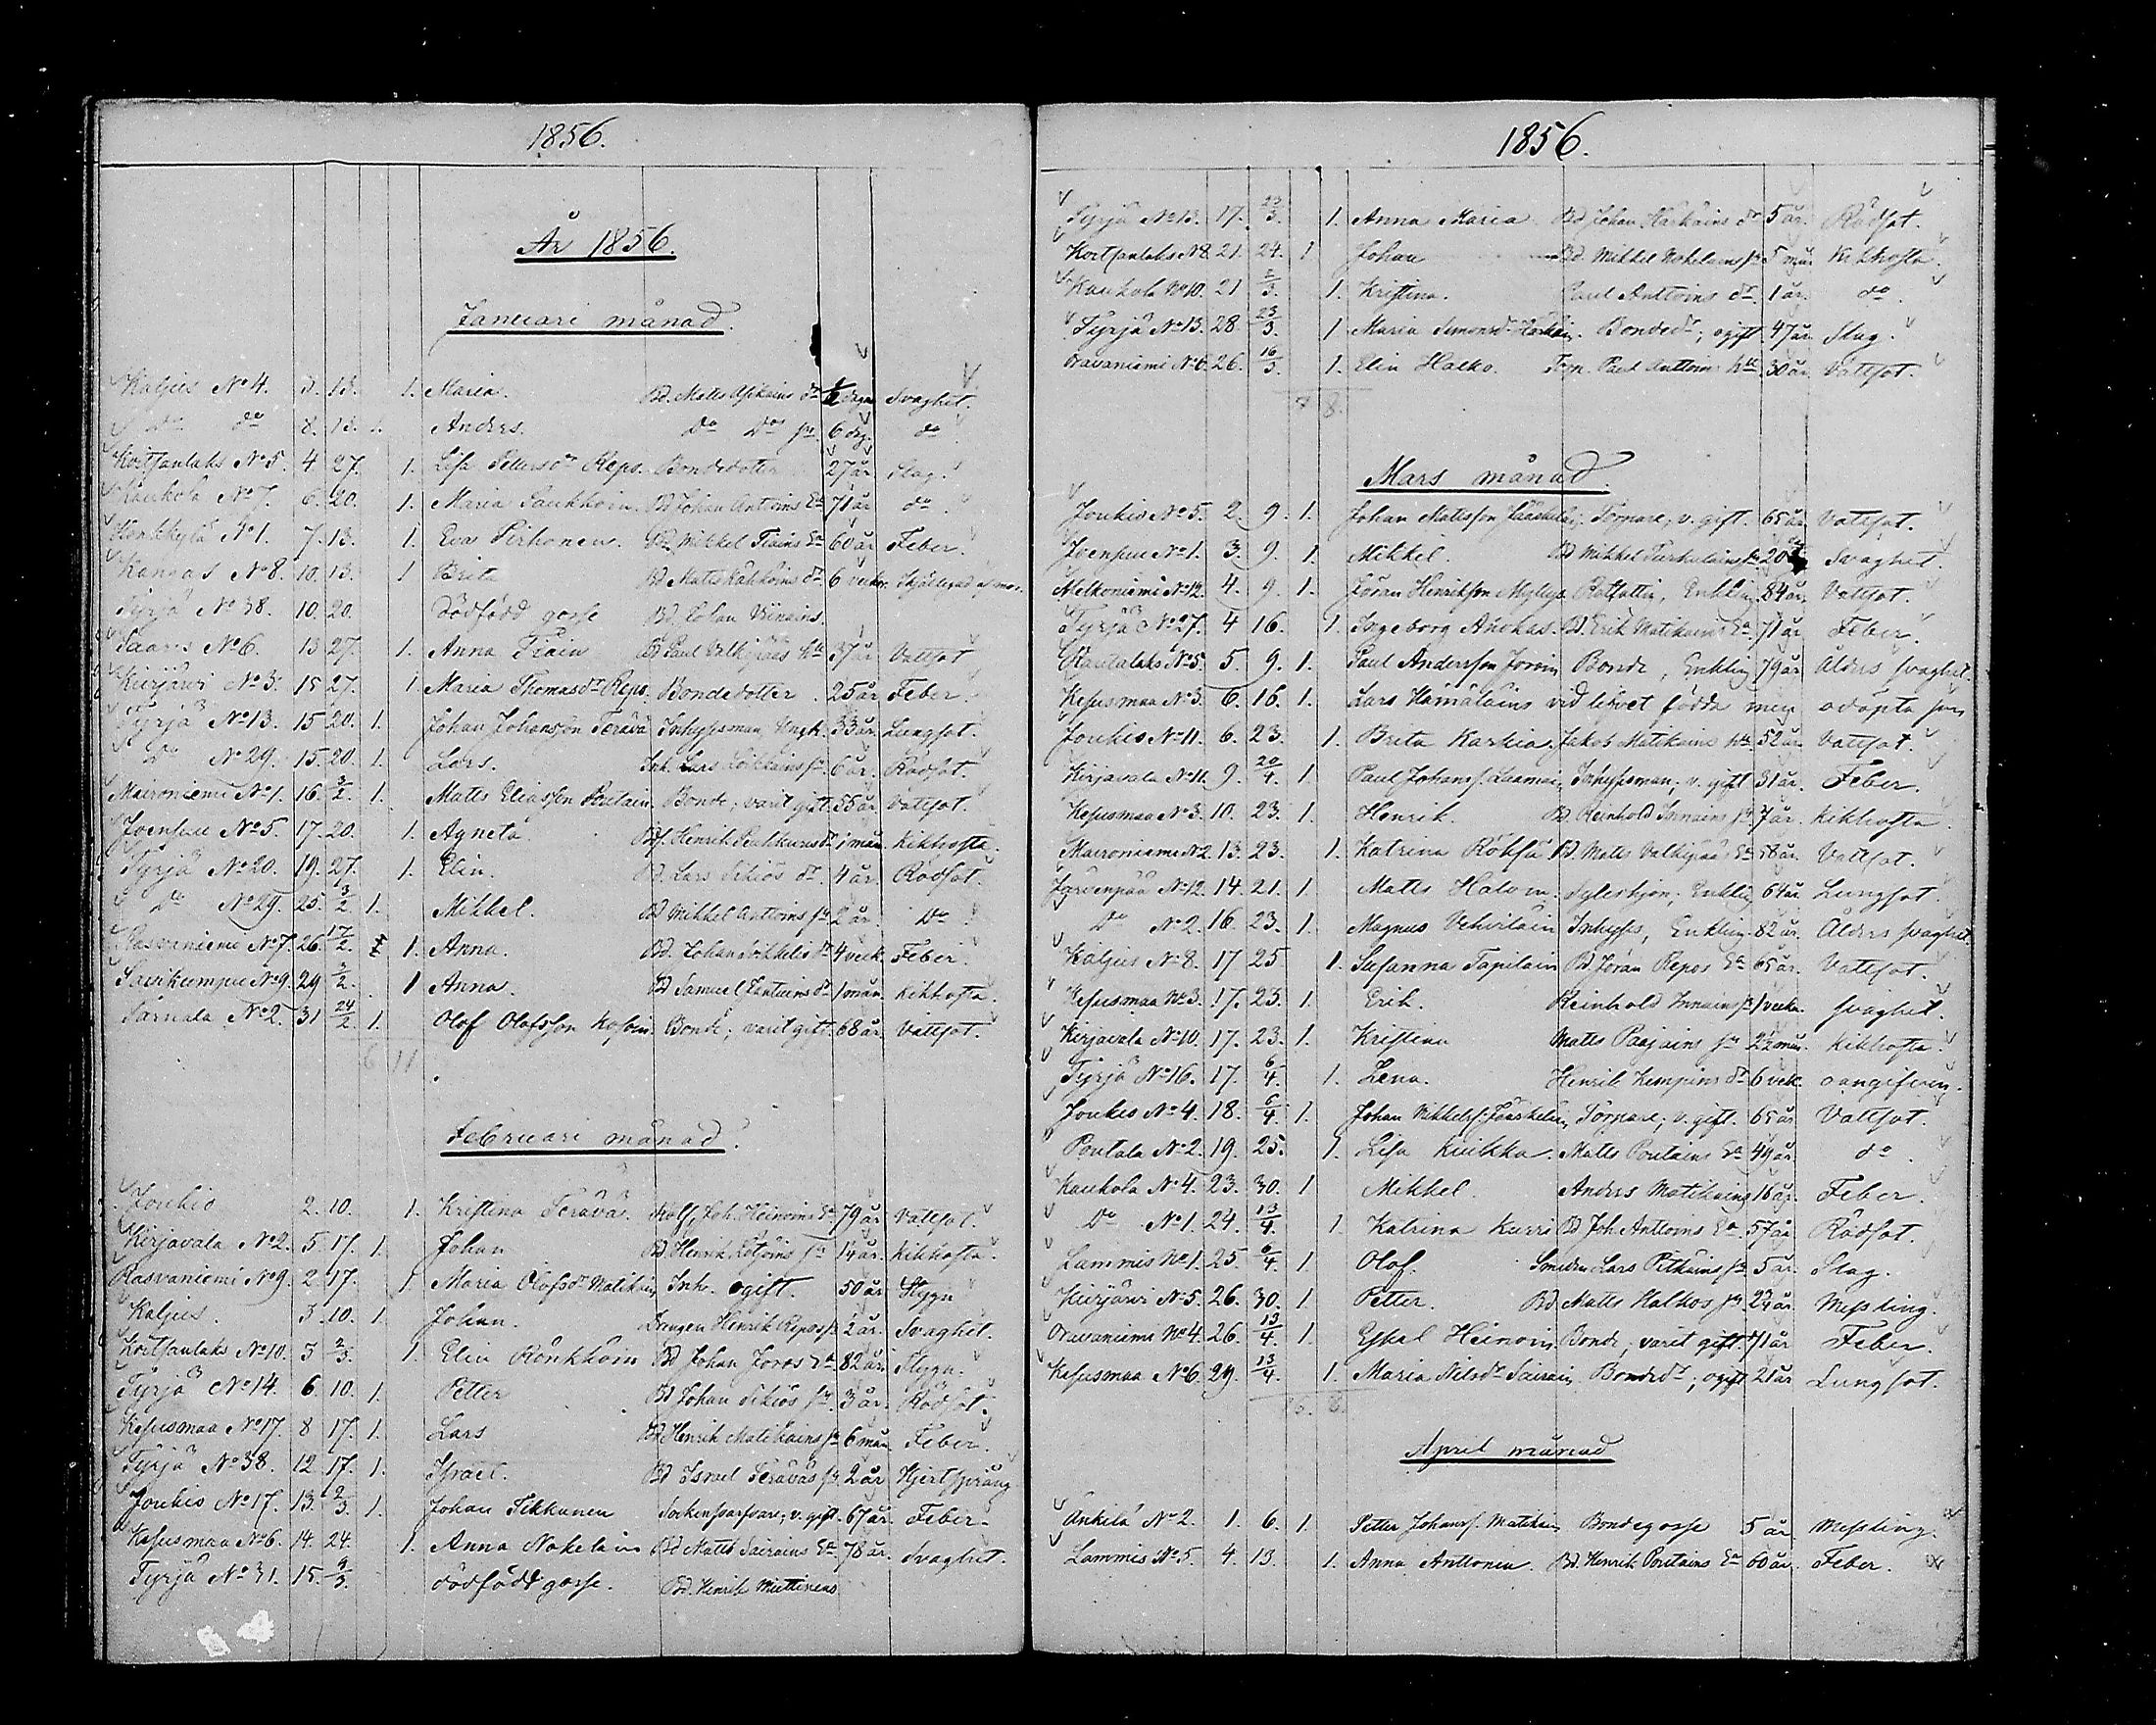 1856.
År 1856.
Januari månad.
Kaljus No 4. 3. 13. 1. Maria. Bd. Matts Asikains dr Svaghet.
do do 8. 13. 1. Anders. Do Dos sn 6 dag. do
Koitsanlaks No 5. 4 27. 1. Lisa Petersdr Repo. Bondedotter 27 år Slag.
Kaukola No 7. 6. 20. 1. Maria Saukkoin. Bd Johan Anttoins Ea 71 år do.
Konkkylä No 1. 7. 13. 1. Eva Pirhonen. Bd. Mikkel Tiains Ea 60 år Feber.
Kangas No 8. 10. 13. 1 Brita Bd Matts Kakkoins dr 6 veckor.
Tyrjä No 38. 10. 20. dödfödd gosse Bd. Johan Viinains.
Saaris No 6. 13 27. 1. Anna Tiain Bd Paul Valkipääs hu 37 år Vattsot
Kiurjärvi No 3. 15 27. 1 Maria Thomasdr Repo. Bondedotter 25 år Feber.
Tyrjä No 13. 15 20. 1. Johan Johansson Terävä Inhysesman 33 år Lungsot.
do No 29. 15. 20. 1. Lars. Inh. Lars Loikkains sn. 6 år. Rödsot.
Maironiemi No 1. 16. 3/2. 1. Matts Eliasson Poutain. Bonde; varit gift. 55 år Vattsot.
Joensuu No 5. 17. 20. 1. Agneta. Henrik dr 1 mån. Kikhosta.
Tyrjä No 20. 19. 27. 1. Elin. Bd. Lars Sikiös dr. 4 år. Rödsot.
Do No 29. 25. 3/2 1. Mikkel. Bd Mikkel Anttoins sn 2 år Do.
Rasvaniemi No 7. 26. 17/2. 1. Anna. Bd. Johan dr 4 veck. Feber.
Savikumpu No 9. 29 3/2. 1 Anna. Bd Samuel dr 1 mån. Kikhosta.
Särnala No 2. 31 24/2 1. Olof Olofsson Kosoin. Bonde; varit gift. 68 år. Vattsot.
6 11
Februari månad.
Joukio 2. 10. 1. Kristina Terävä. Joh. Heinoins Ea 79 år Vattsot.
Kirjavala No 2. 5. 17. 1. Johan Bd. Henrik sn 14 år. Kikhosta.
Rasvaniemi No 9. 2. 17. 1. Maria Olofsdr Matikain Inh. ogift. 50 år Stygn
Kaljus. 3. 10. 1. Johan. Drengen Henrik Repos sn 2 år. Svaghet.
Koitsanlaks No 10. 3 2/3. 1. Elin Rönkköin Bd Johan Joros Ea 82 år. Stygn.
Tyrjä No 14. 6. 10. 1. Petter Bd Johan Sikiös sn. 3 år. Rödsot.
Kesusmaa No 17. 8 17. 1. Lars Bd Henrik Matikains sn 6 mån Feber.
Tyrjä No 38. 12. 17. 1. Israel. Bd Israel Teräväs sn. 2 år Hjertsprång
Joukio No 17. 13. 2/3. 1. Johan Tikkanen v. gift. 67 år. Feber.
Kesusmaa No 6. 14. 24. 1. Anna Nokelain Bd Matts Sairains Ea 78 år. Svaghet.
Tyrjä No 31. 15. 9/3. dödfödd gosse. Bd. Henrik Miettinens
1856.
Tyrjä No 13. 17. 23/3. 1. Anna Maria Bd Johan Härkäins dr 5 år. Rödsot.
Koitsanlaks No 8. 21. 24. 1 Johan Bd. Mikkel Nokelains sn 5 mån. Kikhosta.
Kaukola No 10. 21 2/3. 1. Kristina. Paul Anttoins dr. 1 år. do.
Tyrjä No 13. 28 23/3. 1 Maria Simonsdr Härkäin. Bondedr; ogift 47 år. Slag.
Oravaniemi No 6. 26. 16/3. 1. Elin Halko. Paul Anttoins hu 30 år. Vattsot.
7 8.
Mars månad.
Joukio No 5. 2. 9. 1. Johan Matisson Jääskelä, Torpare; v. gift. 65 år. Vattsot.
Joensuu No 1. 3. 9. 1. Mikkel. Bd Mikkel sn 20 Svaghet.
Melkoniemi No 12. 4. 9. 1. Jöran Henriksson Myllys Rotfattig, Enkling 84 år. Vattsot.
Tyrjä No 27. 4 16. 1. Ingeborg Ahokas. Bd. Erik Matikains Ea 71 år Feber.
Rautalaks No 5. 5. 9. 1. Paul Andersson Jovin Bonde, Enkling 79 år Ålders svaghet.
Kesusmaa No 3. 6. 16. 1. Lars Hämäläins vid lifvet födda men odöpta son
Joukio No 11. 6. 23. 1. Brita Karhia. Jakob Matikains hu 52 år. Vattsot.
Kirjavala No 11. 9. 20/4. 1 Paul Johanss. Laamai, Inhysesman; v. gift 31 år. Feber.
Kesusmaa No 3. 10. 23. 1. Henrik. Bd. Reinhold Innains sn 7 år. Kikhosta.
Maironiemi No 2. 13. 23. 1. Katrina Röksä Bd. Matts Valkipääs Ea 58 år. Vattsot.
Järvenpää No 12. 14. 21. 1. Matts Haloin. Enkling 64 år Lungsot.
Do No 2. 16. 23. 1. Magnus Vehviläin Inhyses, Enkling 82 år. Ålders svaghet.
Kaljus No 8. 17 25 1. Susanna Tapilain Bd Jöran Repos Ea 65 år. Vattsot.
Kesusmaa No 3. 17. 23. 1. Erik. Reinhold Innains sn 1 vecka. Svaghet.
Kirjavala No 10. 17. 23. 1. Kristian Matts Paajains sn 2½ mån. Kikhosta.
Tyrjä No 16. 17. 6/4. 1. Lena. Henrik Kempins dr 6 veck. oangifven.
Joukio No 4. 18. 6/4. 1. Johan Mikkelss. Jääskeläin, Torpare; v. gift. 65 år Vattsot.
Poutala No 2. 19. 25. 1. Lisa Kuikka. Matts Poutains Ea 49 år do.
Kaukola No 4. 23. 30. 1 Mikkel. Anders Matikains 16 år. Feber.
Do No 1. 24. 13/4. 1 Katrina Kurri Bd Joh. Anttoins Ea. 57 år Rödsot.
Lammis No 1. 25. 6/4. 1 Olof. Smeden Lars Pitkäins sn 5 år. Slag.
Kiurjärvi No 5. 26. 30. 1. Petter. Bd. Matts Halkos sn. Messling.
Oravaniemi No 4. 26. 13/4. 1 Eskel Heinoin Bonde, varit gift. 41 år Feber.
Kesusmaa No 6. 29. 13/4. 1. Maria Nilsdr Sairain, Bondedr; ogift 21 år Lungsot.
16. 8.
April månad
Ankila No 2. 1. 6. 1. Petter Johanss. Matikain Bondegosse 5 år Messling.
Lammis No 5. 4. 13. 1. Anna Anttonen. Bd. Henrik Poutains Ea 60 år. Feber.